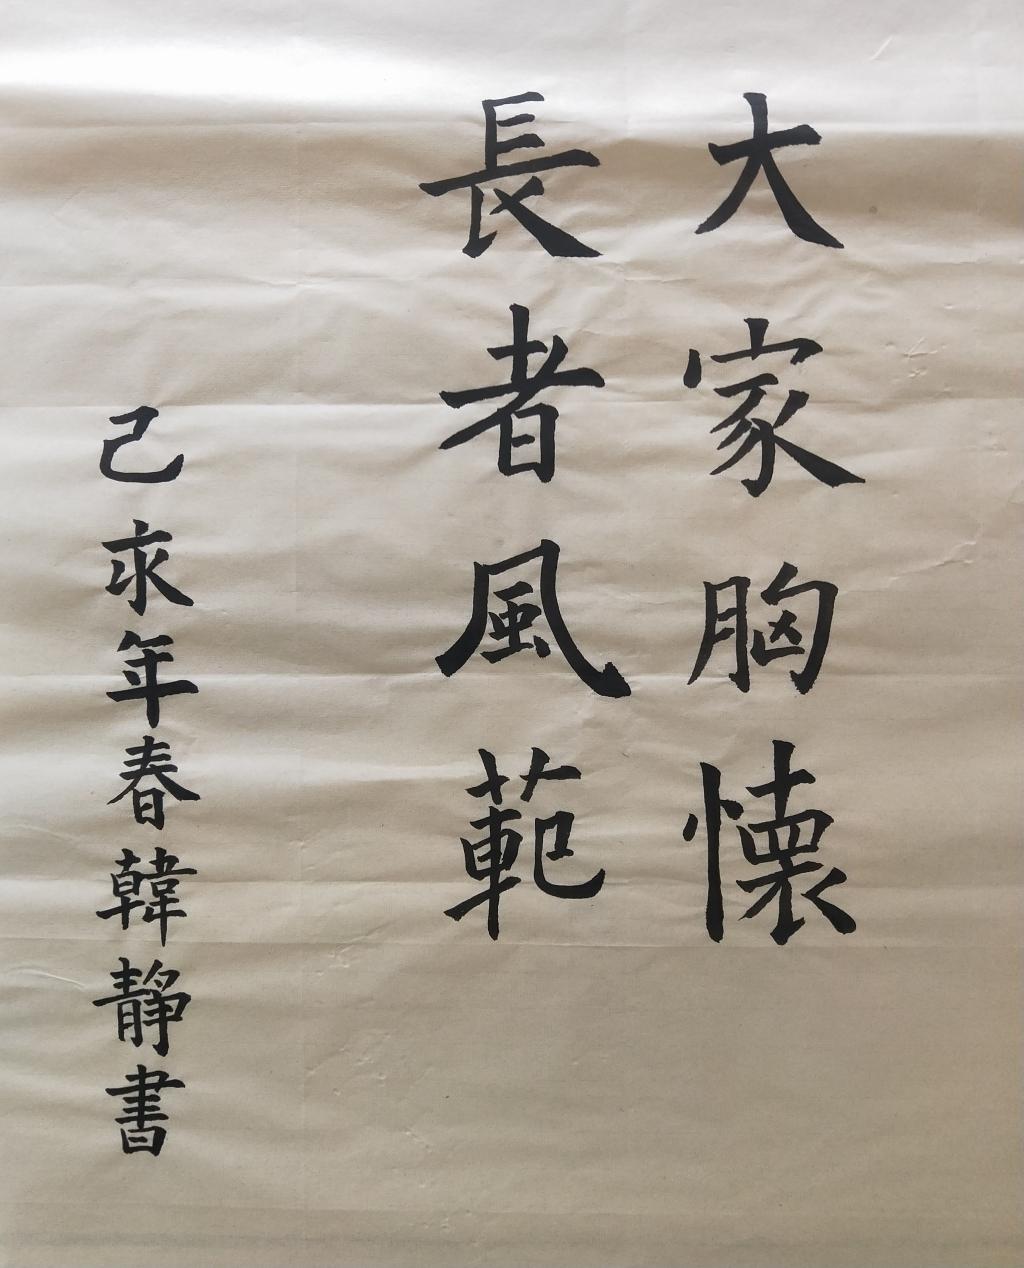 大家胸懐
長者風範
己亥年春韓靜書